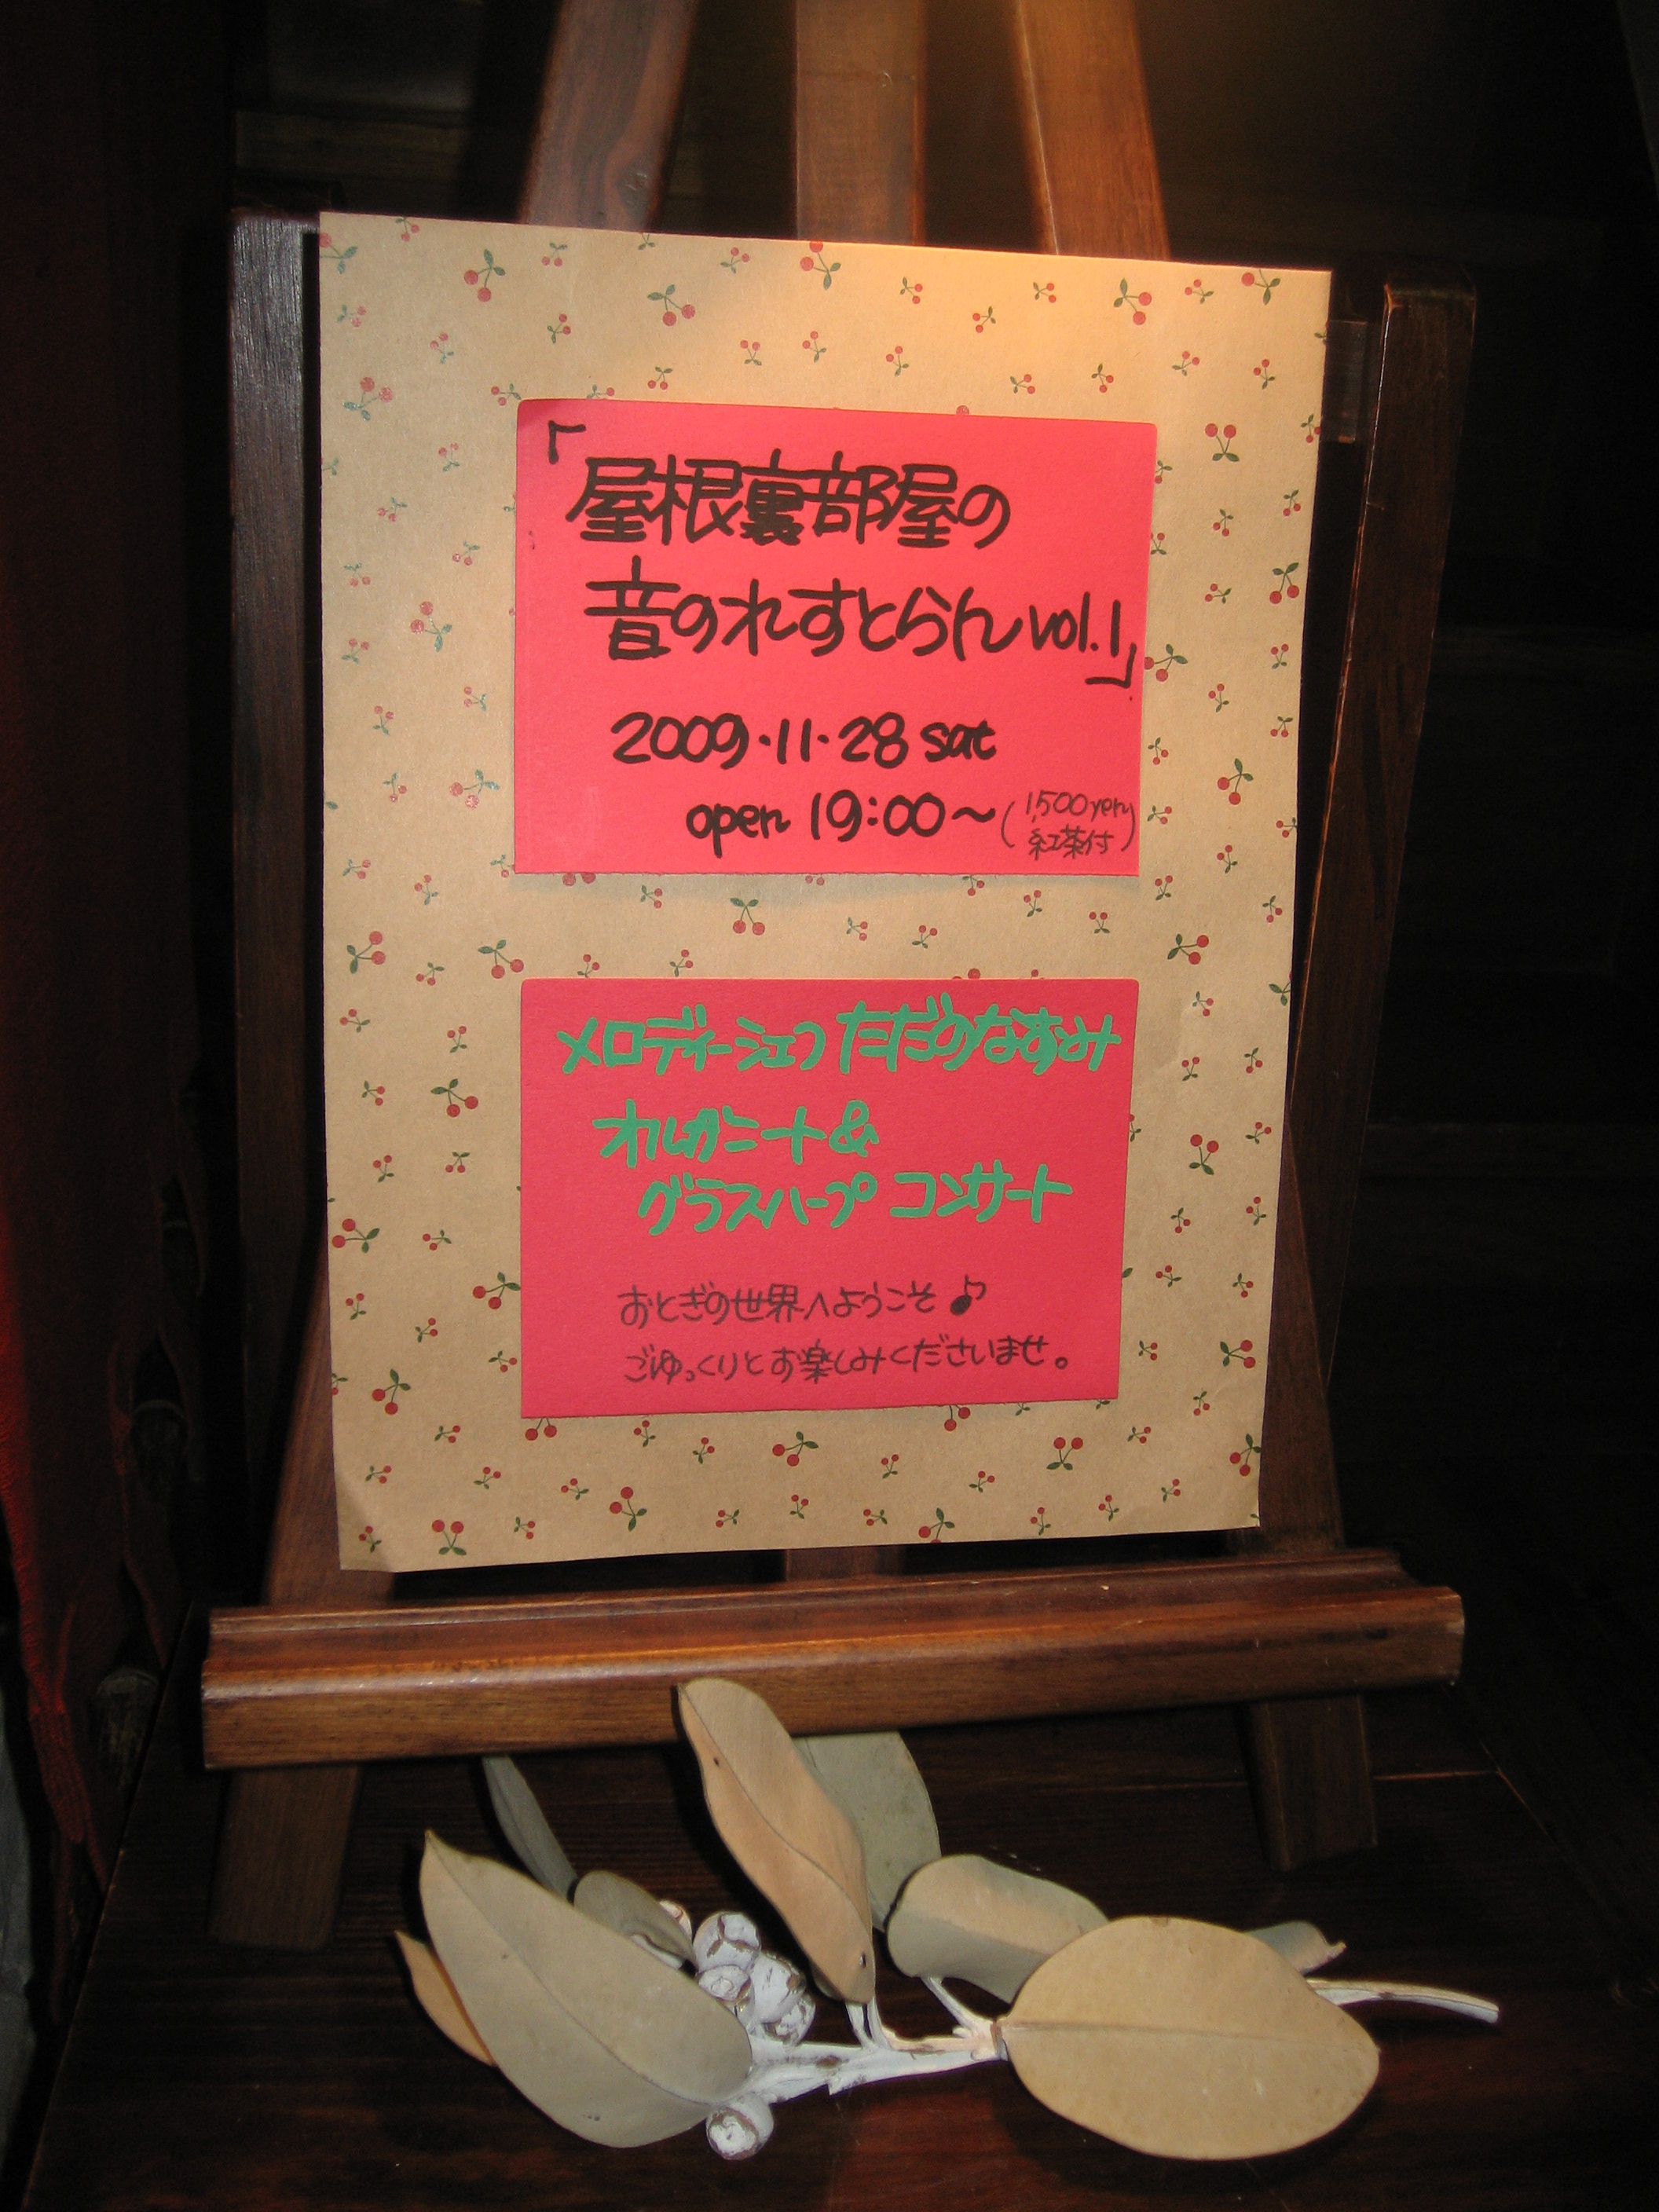 「屋根裏部屋の
音のれすとらんvol.1」
2009・11・28 sat
open 19:00〜(1,500yen
紅茶付)
メロディーシェフ ただのなすみ
オルガニート&
グラスハープ コンサート
おとぎの世界へようこそ♪
ごゆっくりとお楽しみくださいませ。